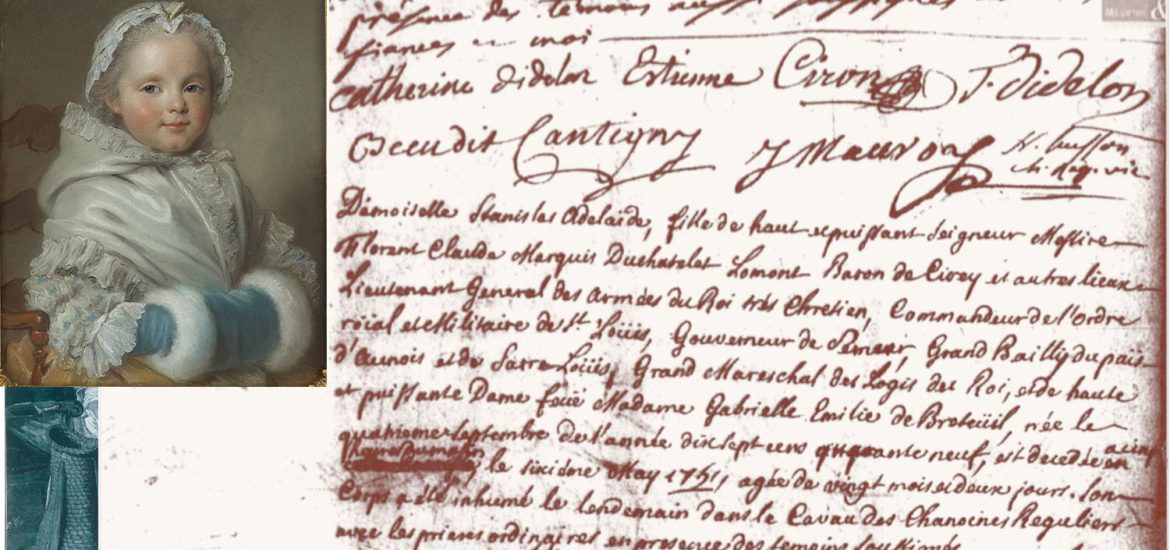 MEURTHE &
présence des témoins aussi soussignés
fiances et moi
Catherine didelon Estienne Ciron J. Didelon
Cantigny J Mauron
Demoiselle Stanislas Adelaïde, fille de haut et puissant seigneur Messire
Florent Claude Marquis Duchatelet Lomont Baron de Cirey et autres lieux
Lieutenant General des Armées du Roi très Chretien, Commandeur de l'ordre
roïal et Militaire de St Loüis, Gouverneur de Semeur, Grand Bailly du païs
d'Aunois et de Sarre Loüis, Grand Mareschal des Logis du Roi, et de haute
et puissante Dame feuë Madame Gabrielle Emilie de Breteüil, née le
quatrieme Septembre de l'année dix sept cens quarante neuf, est decedée
le sixiéme May 1751, agée de vingt mois et deux jours. Son
Corps a été inhumé le lendemain dans le Caveau des Chanoines Reguliers
avec les prieres ordinaires en presence des temoins soussignés